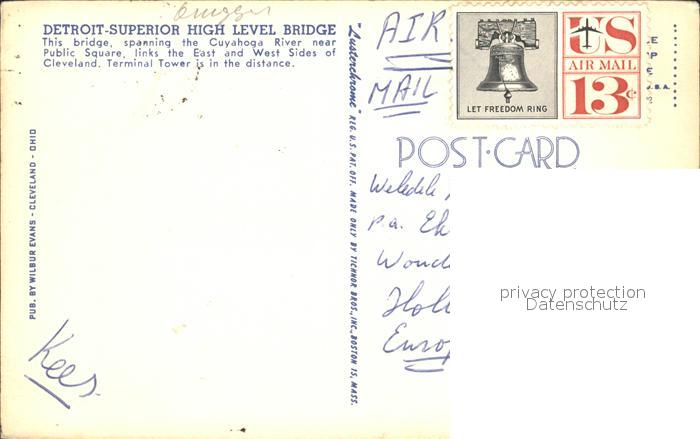 DETROIT-SUPERIOR HIGH LEVEL BRIDGE
This bridge, spanning the Cuyahoga River near
Public Square, links the East and West Sides of
Cleveland. Terminal Tower is in the distance.
PUB. BY WILBUR EVANS - CLEVELAND - OHIO
Kees.
"Lusterchrome" REG. U.S. PAT. OFF. MADE ONLY BY TICHNOR BROS., INC., BOSTON 15, MASS.
AIR.
MAIL
LET FREEDOM RING
US
AIR MAIL
13c
POST-CARD
p.a. Eh
Euro
privacy protection
Datenschutz